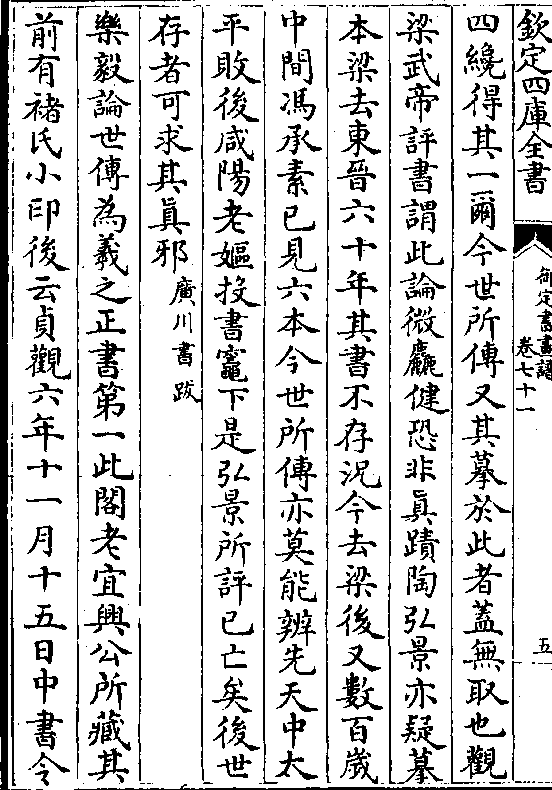 欽定四庫全書
御定書畫譜
卷七十一
五
四纔得其一爾今世所傳又其摹於此者蓋無取也觀
梁武帝評書謂此論微麤健恐非眞蹟陶弘景亦疑摹
本梁去東晉六十年其書不存況今去梁後又數百歲
中間馮承素已見六本今世所傳亦莫能辨先天中太
平敗後咸陽老嫗投書竈下是弘景所評已亡矣後世
存者可求其眞邪廣川書跋
樂毅論世傳為羲之正書第一此閣老宜興公所藏其
前有褚氏小印後云貞觀六年十一月十五日中書令